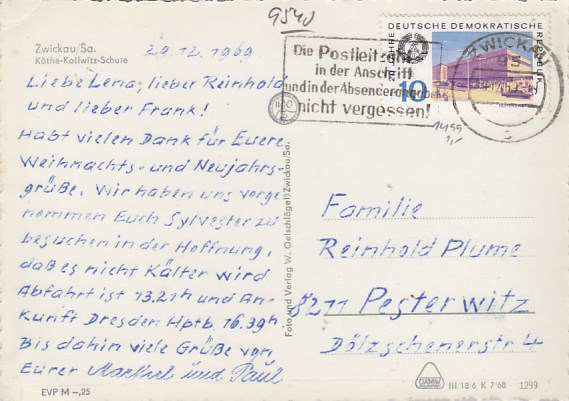 9540
Zwickau/Sa.
Käthe-Kollwitz-Schule
29.12.1969
Liebe Lena, lieber Reinhold
und lieber Frank!
Habt vielen Dank für Euere
Weihnachts- und Neujahrs-
grüße. Wir haben uns vorge
nommen Euch Sylvester zu
besuchen in der Hoffnung,
daß es nicht Kälter wird
Abfahrt ist 13.21h und An-
kunft Dresden Hptb. 16.39h
Bis dahin viele Grüße von
Eurer und Paul
EVP M –,25
Foto und Verlag W. Oelschlägel/Zwickau/Sa.
Die Postleitzahl
in der Anschrift
und in der Absenderangabe
nicht vergessen!
20 JAHRE DEUTSCHE DEMOKRATISCHE REPUBLIK
10
ZWICKAU
1499
Familie
Reinhold Plume
8211 Pesterwitz
Dölzschenerstr. 4
III/18 6 K 7 68 1299